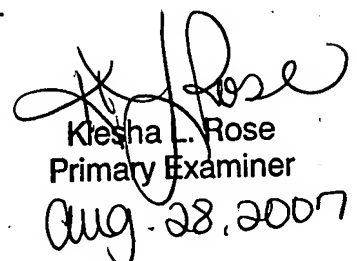 K. L. Rose
Kiesha L. Rose
Primary Examiner
Aug. 28, 2007